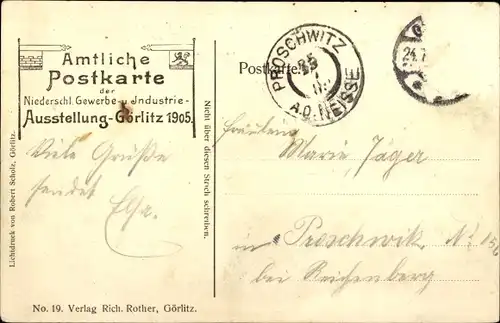 Amtliche
Postkarte
der
Niederschl. Gewerbe- u. Industrie-
Ausstellung-Görlitz 1905.
Viele Grüße
sendet Elsa.
Lichtdruck von Robert Scholz, Görlitz.
No. 19. Verlag Rich. Rother, Görlitz.
Nicht über diesen Strich schreiben.
Postkarte.
PROSCHWITZ
25
A.D. NEISSE
24.7
Fräulein
Marie Jäger
in Proschwitz, N. 136
bei Reichenberg